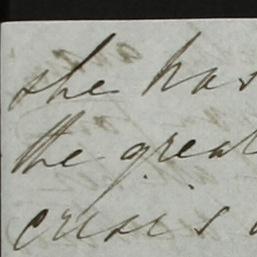 she has
the great
crisis